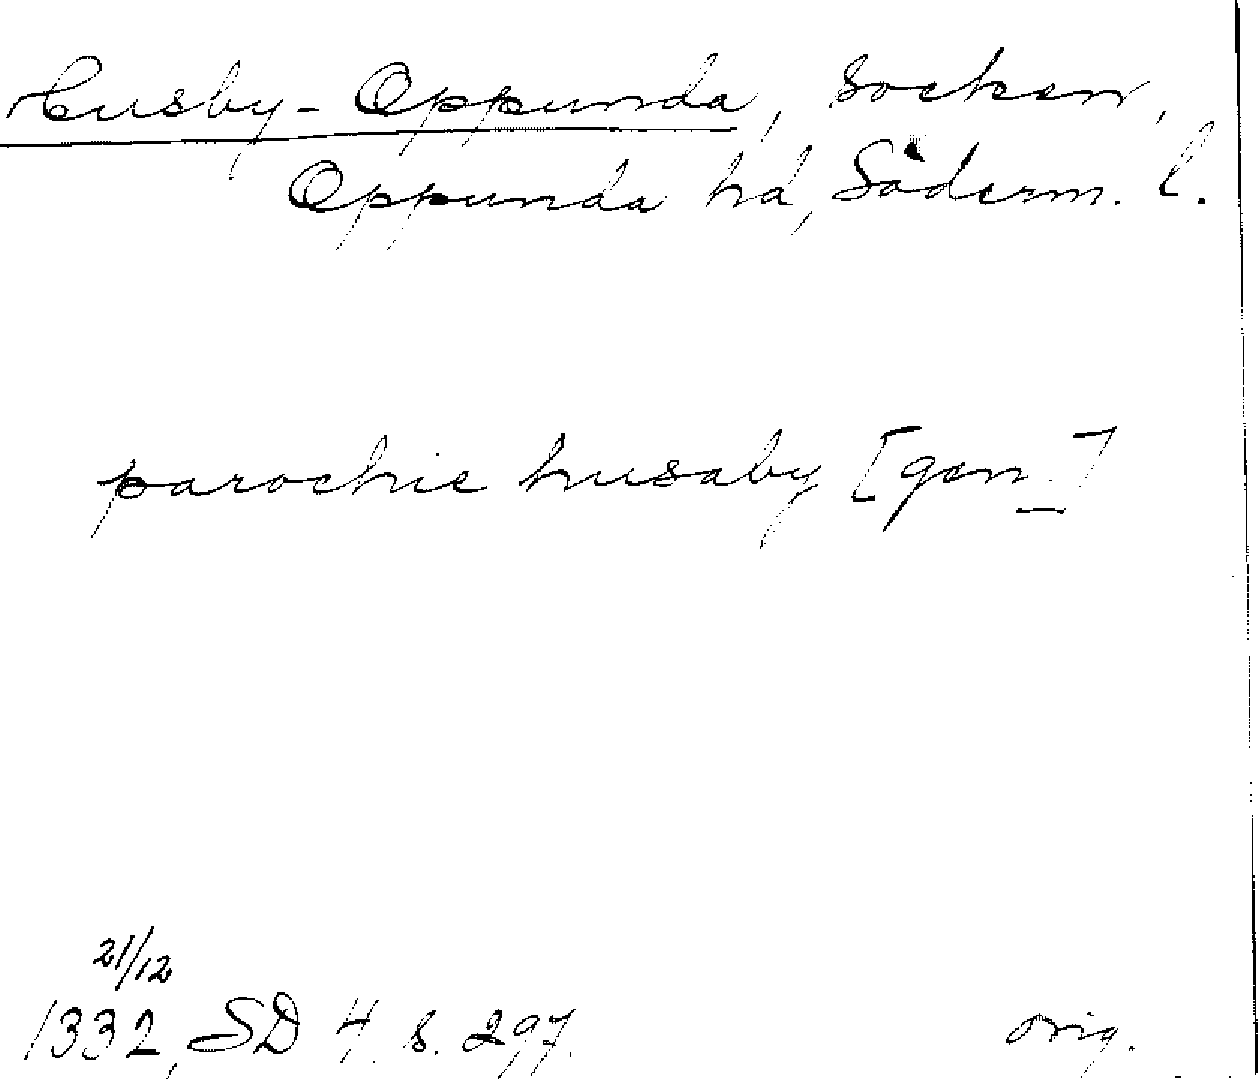 Husby-Oppunda, socken,
Oppunda hd, Söderm. l.
parochie husaby [gen.]
21/12
1332, SD 4 s. 297.
orig.